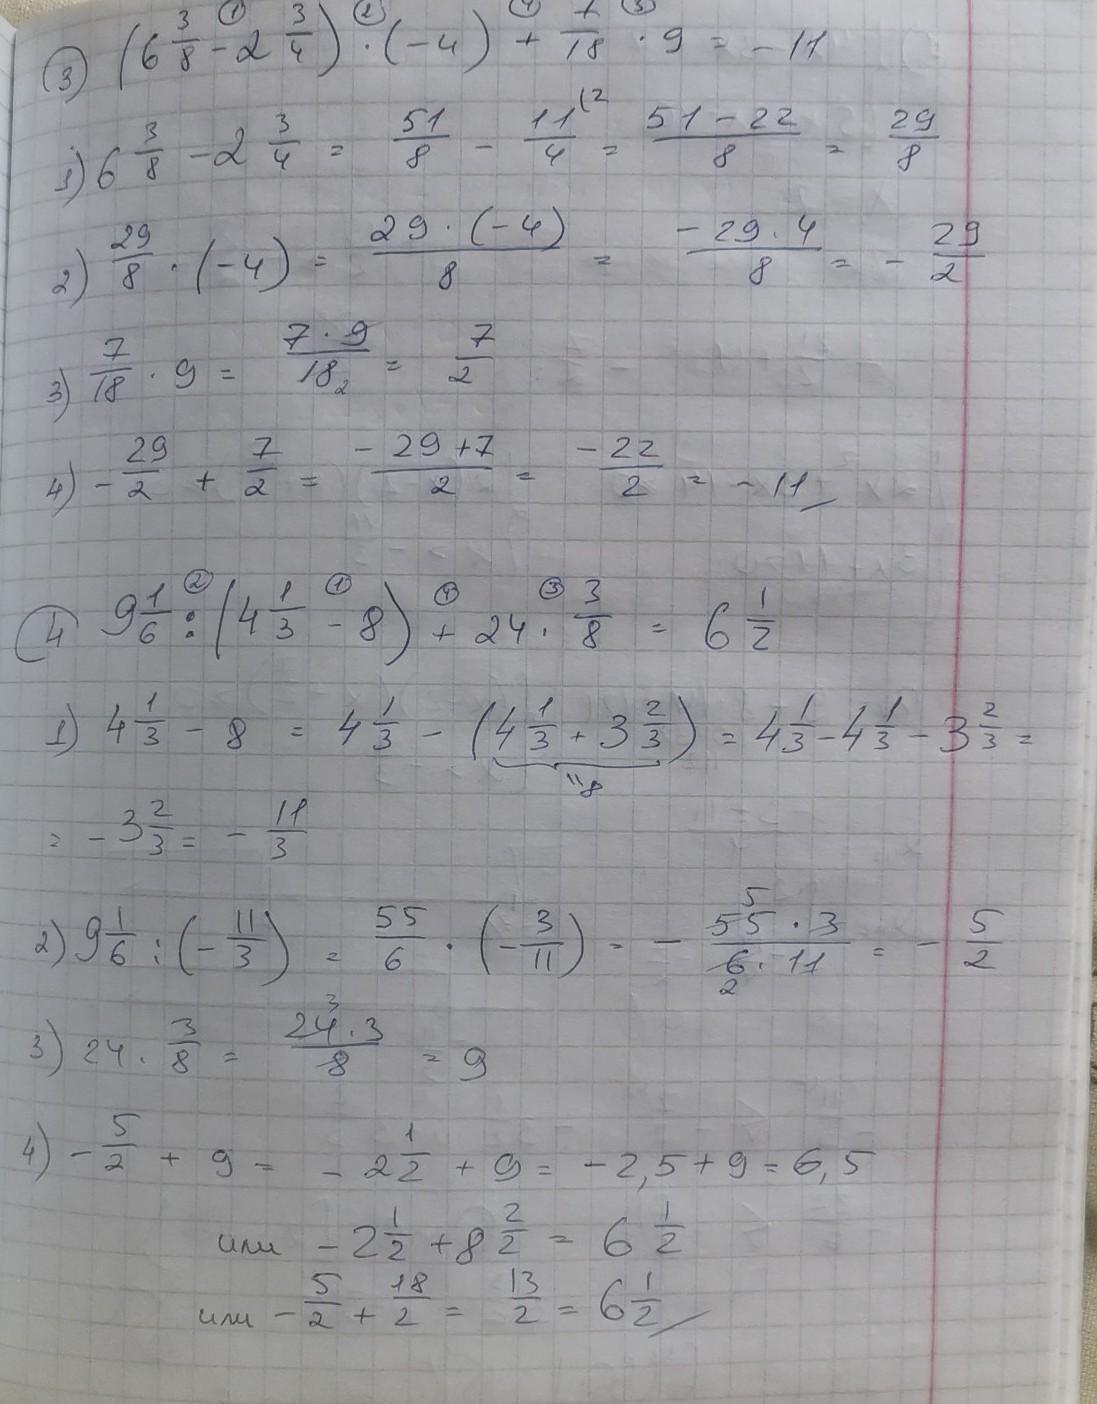 ③ (6 3/8 - 2 3/4) · (-4) + 7/18 · 9 = -11
1) 6 3/8 - 2 3/4 = 51/8 - 11/4 (2 = (51 - 22)/8 = 29/8
2) 29/8 · (-4) = (29 · (-4))/8 = (-29 · 4)/8 = - 29/2
3) 7/18 · 9 = (7 · 9)/18 2 = 7/2
4) - 29/2 + 7/2 = (-29 + 7)/2 = -22/2 = -11
④ 9 1/6 : (4 1/3 - 8) + 24 · 3/8 = 6 1/2
1) 4 1/3 - 8 = 4 1/3 - (4 1/3 + 3 2/3) = 4 1/3 - 4 1/3 - 3 2/3 =
" 8
= -3 2/3 = - 11/3
2) 9 1/6 : (- 11/3) = 55/6 · (- 3/11) = - (55 5 · 3)/(6 2 · 11) = - 5/2
3) 24 · 3/8 = (24 3 · 3)/8 = 9
4) - 5/2 + 9 = -2 1/2 + 9 = -2,5 + 9 = 6,5
или -2 1/2 + 8 2/2 = 6 1/2
или - 5/2 + 18/2 = 13/2 = 6 1/2